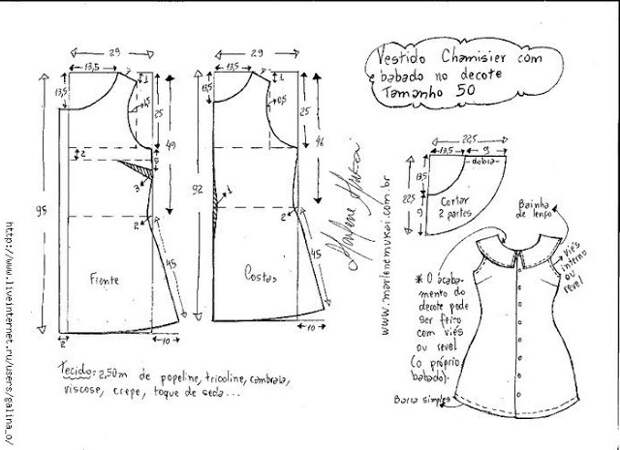 Vestido Chamisier com
babado no decote
Tamanho 50
29
13,5
1
13,5
1,5
25
49
2
3
2
95
45
Frente
2
10
29
13,5
1
13,5
0,5
25
46
92
1
2
45
Costas
10
Marlene Mukai
www.marlenemukai.com.br
22,5
13,5
9
dobra
13,5
22,5
9
Cortar
2 partes
Bainha
de lenço
viés
interno
ou
revel
* O acaba-
mento do
decote pode
ser feito
com viés
ou revel
(o próprio
babado).
Barra simples
Tecido: 2,50m de popeline, tricoline, cambraia,
viscose, crepe, toque de seda...
http://www.liveinternet.ru/users/galina_o/